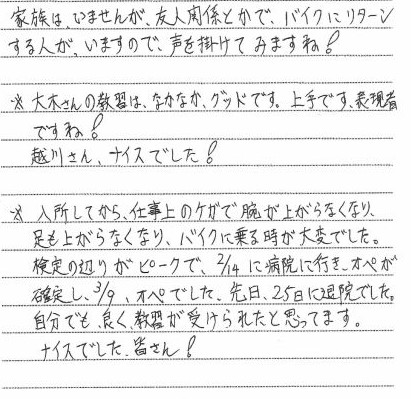 家族は、いませんが、友人関係とかで、バイクにリターン
する人が、いますので、声を掛けてみますね!
※ 大木さんの教習は、なかなか、グッドです。上手です、表現者
ですね!
越川さん、ナイスでした!
※ 入所してから、仕事上のケガで腕が上がらなくなり、
足も上がらなくなり、バイクに乗る時が大変でした。
検定の辺りがピークで、2/14に病院に行き、オペが
確定し、3/9、オペでした。先日、25日に退院でした。
自分でも、良く、教習が受けられたと思ってます。
ナイスでした、皆さん!